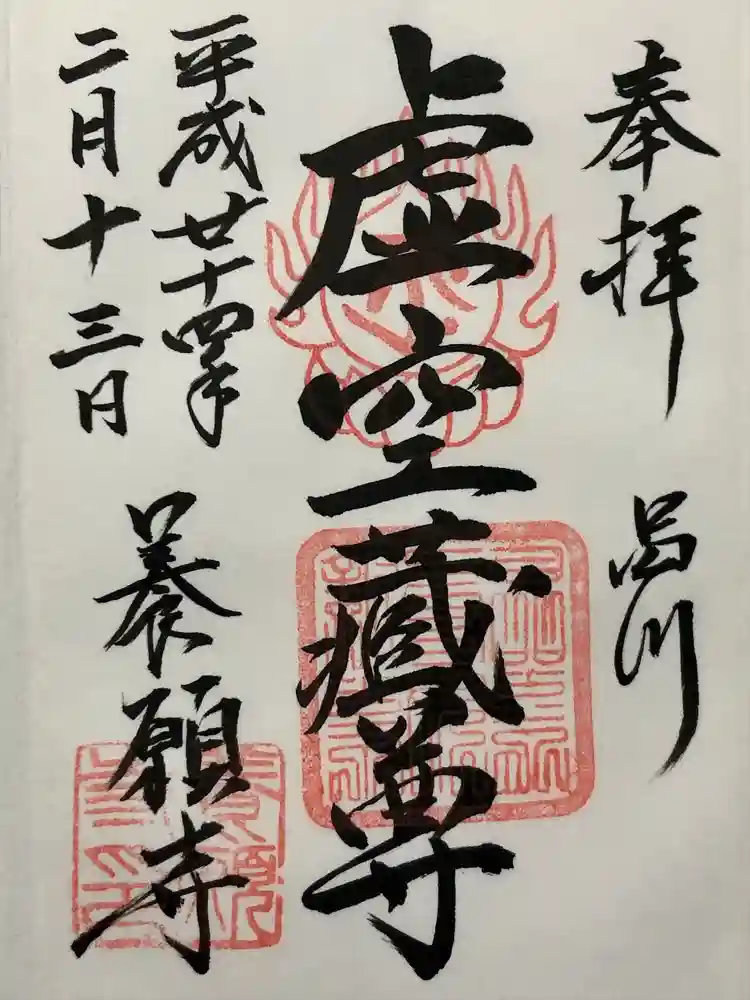 奉拝
品川
虚空藏尊
平成廿十四年
二月十三日
養願寺